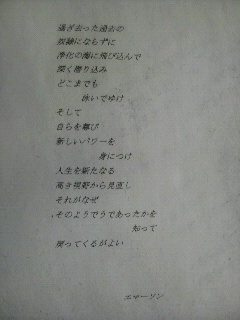 過ぎ去った過去の
奴隷にならずに
浄化の海に飛び込んで
深く潜り込み
どこまでも
泳いでゆけ
そして
自らを尊び
新しいパワーを
身につけ
人生を新たなる
高き視野から見直し
それがなぜ
そのようでうであったかを
知って
戻ってくるがよい
エマーソン